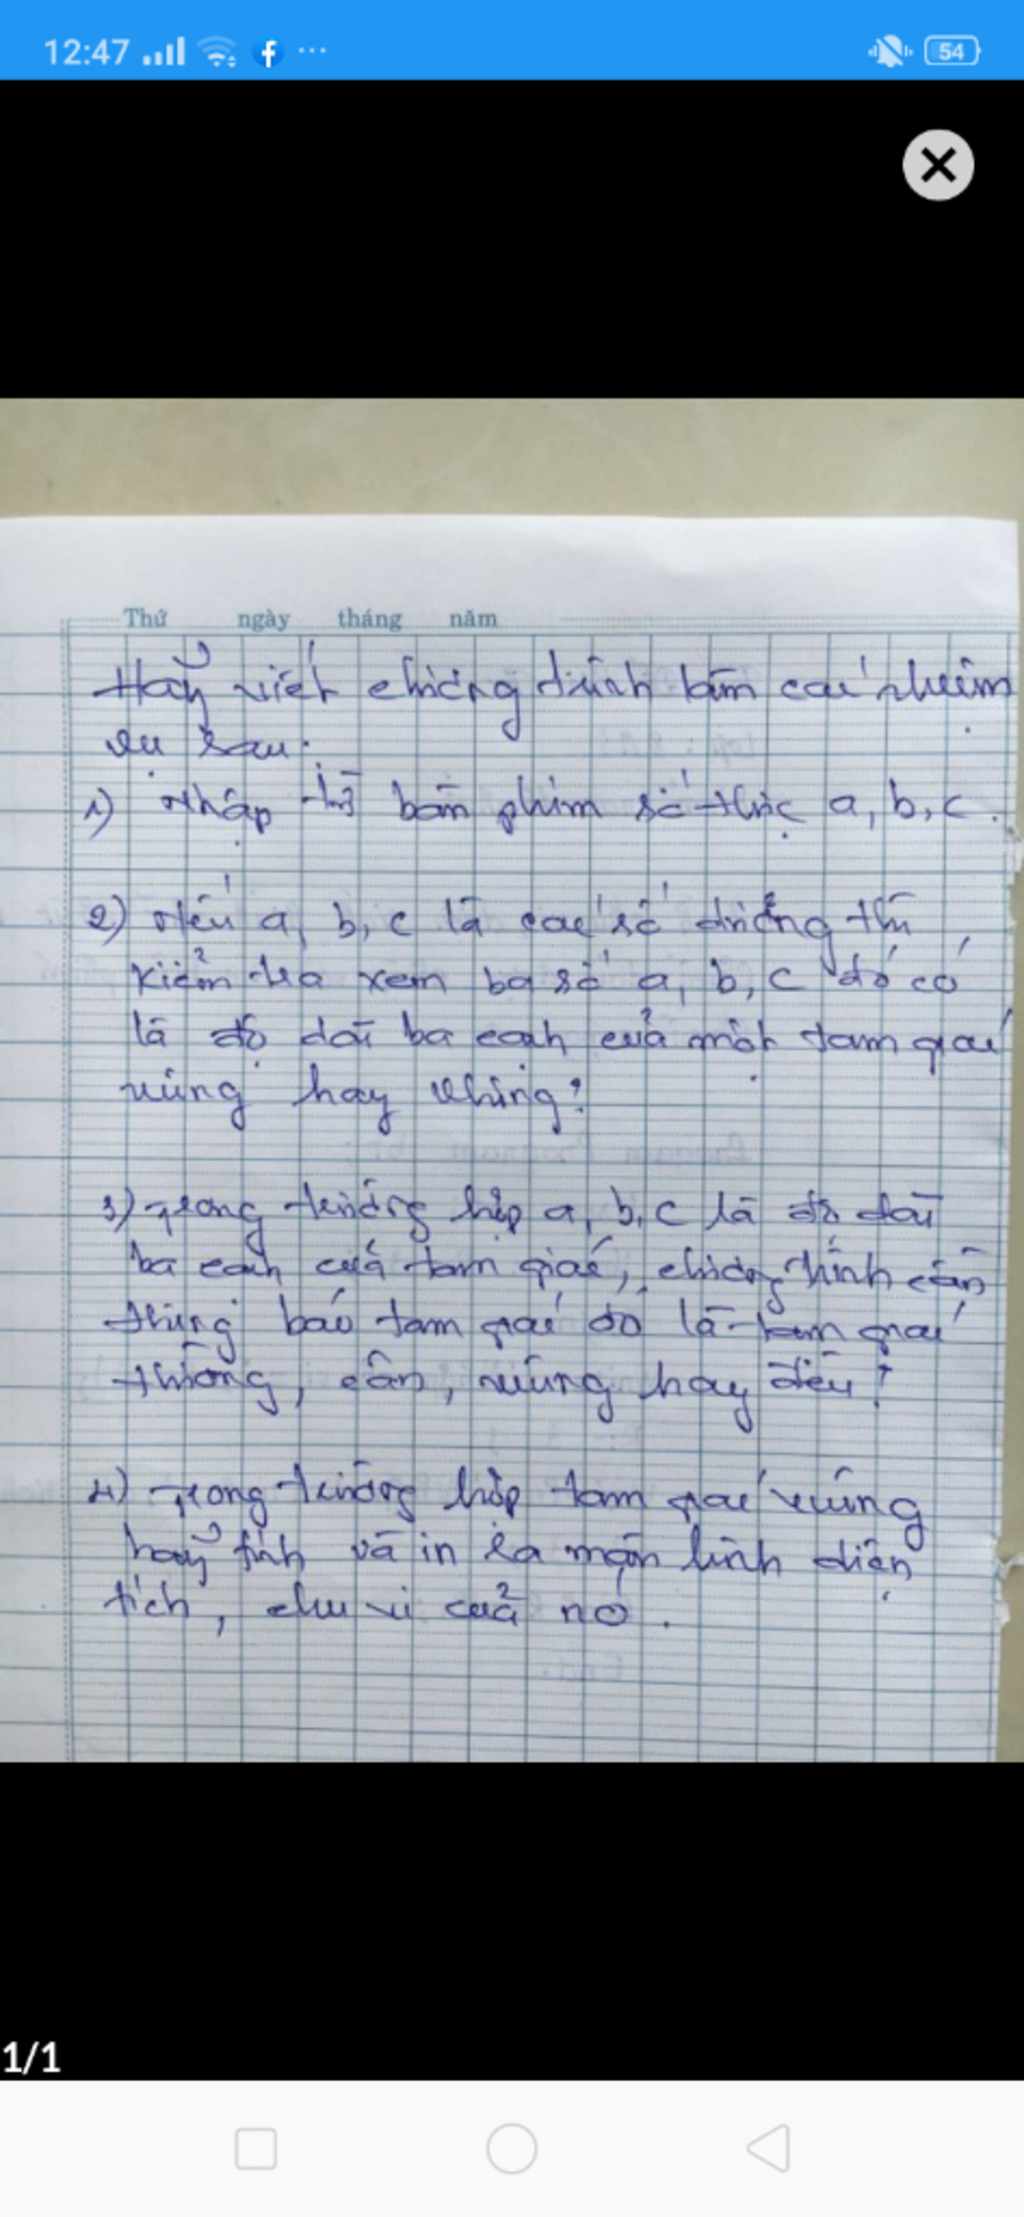 12:47
54
Thứ ngày tháng năm
Hãy viết chương trình làm các nhiệm
vụ sau:
1) Nhập từ bàn phím số thực a, b, c.
2) Nếu a, b, c là các số dương thì
kiểm tra xem ba số a, b, c đó có
là độ dài ba cạnh của một tam giác
vuông hay không?
3) Trong trường hợp a, b, c là độ dài
ba cạnh của tam giác, chương trình cần
thông báo tam giác đó là tam giác
thường, cân, vuông hay đều?
4) Trong trường hợp tam giác vuông
hãy tính và in ra màn hình diện
tích, chu vi của nó.
1/1